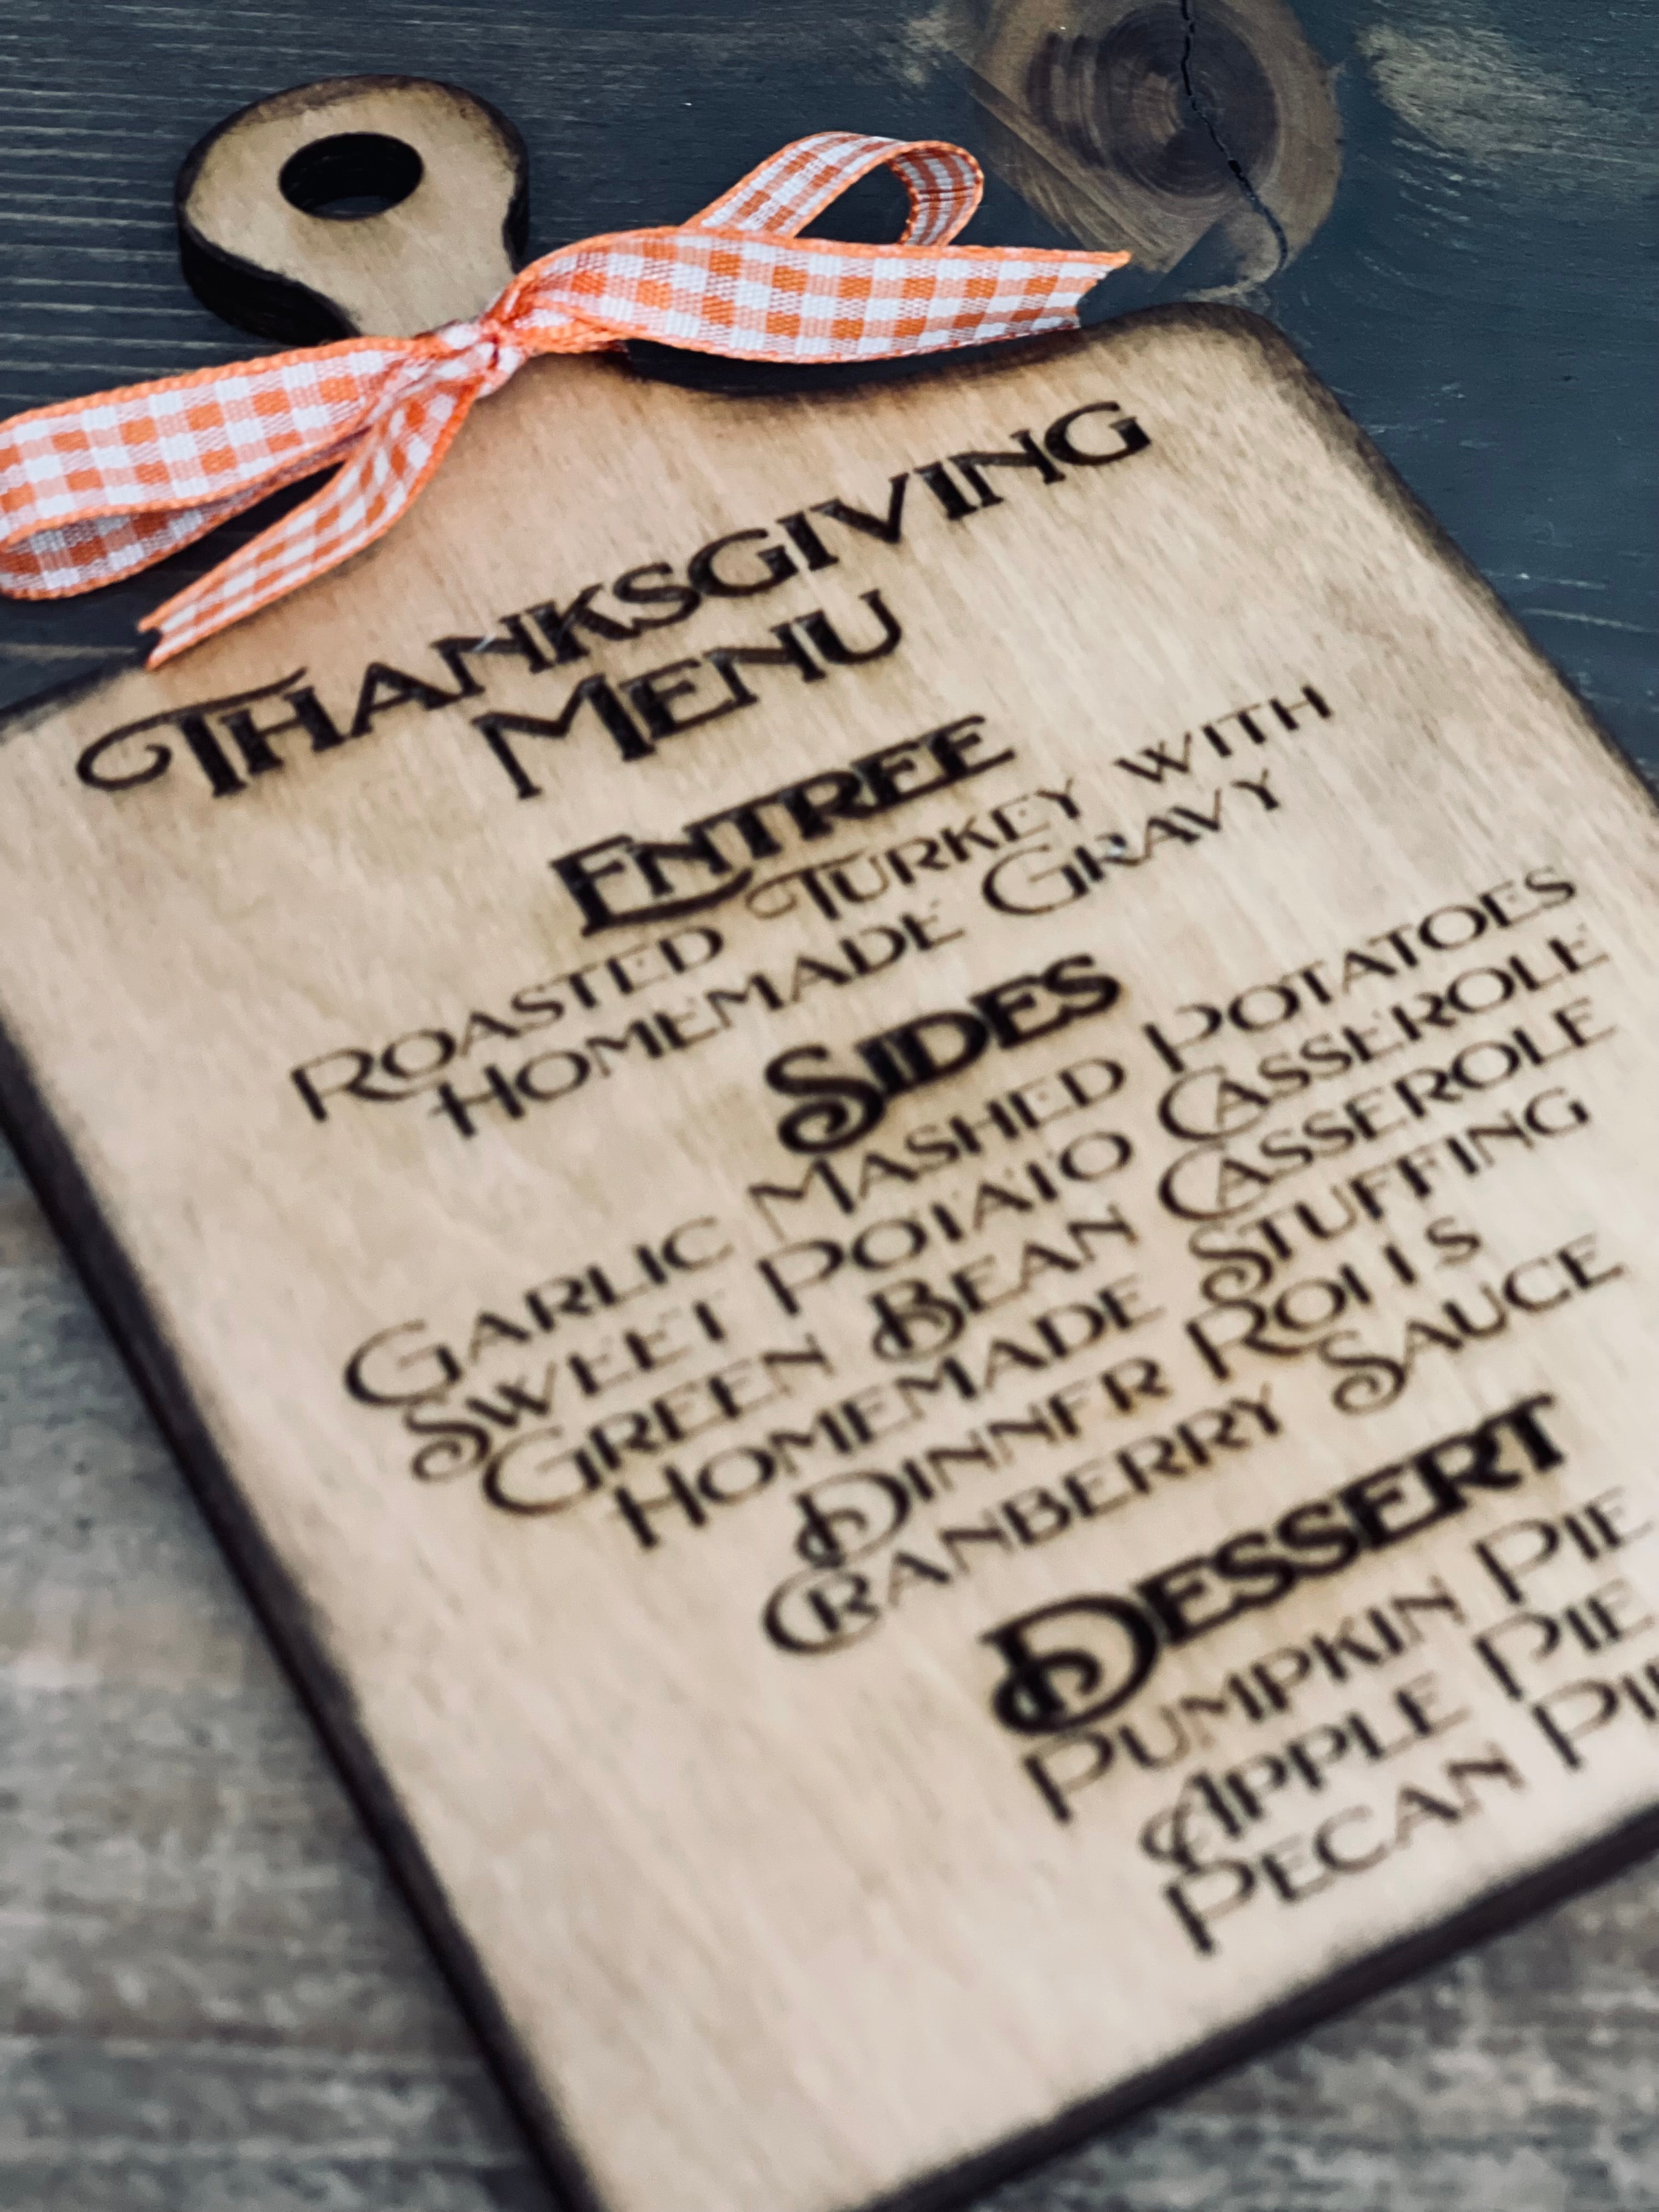 THANKSGIVING
MENU
ENTREE
ROASTED TURKEY WITH
HOMEMADE GRAVY
SIDES
GARLIC MASHED POTATOES
SWEET POTATO CASSEROLE
GREEN BEAN CASSEROLE
HOMEMADE STUFFING
DINNER ROLLS
CRANBERRY SAUCE
DESSERT
PUMPKIN PIE
APPLE PIE
PECAN PIE